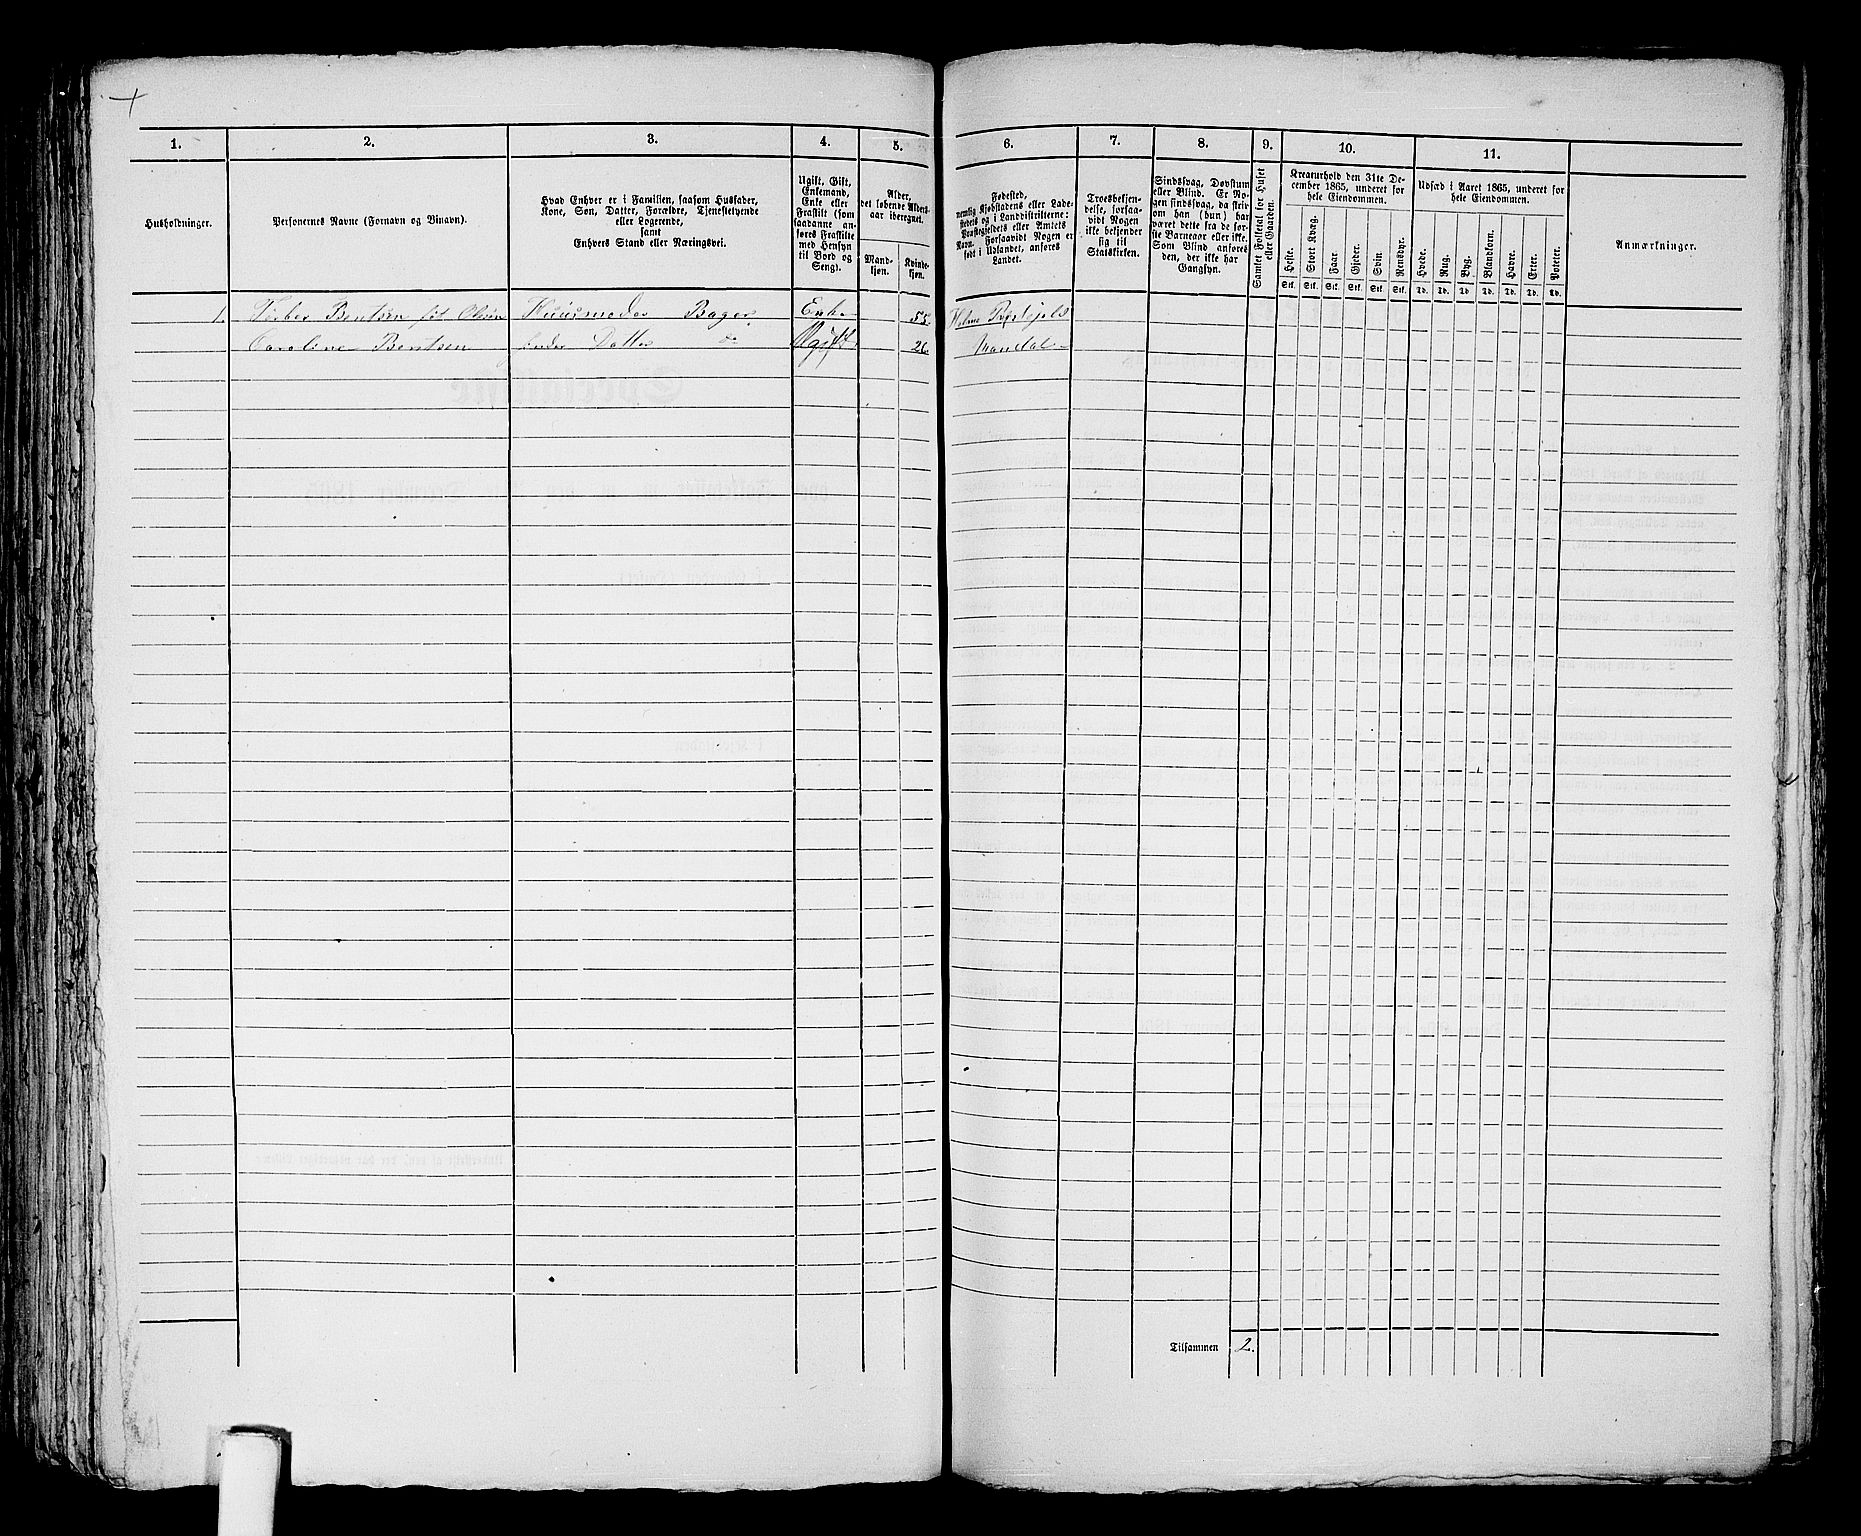 1. 2. 3. 4. 5. 6. 7. 8. 9. 10. 11.
Husholdninger.
Personernes Navne (Fornavn og Binavn).
Hvad Enhver er i Familien, saasom Husfader,
Kone, Søn, Datter, Forældre, Tjenestetyende
eller Logerende,
samt
Enhvers Stand eller Næringsvei.
Ugift, Gift,
Enkemand,
Enke eller
Fraskilt (som
saadanne an-
føres Fraskilte
med Hensyn
til Bord og
Seng).
Alder,
det løbende Alders-
aar iberegnet.
Mand-
kjøn.
Kvinde-
kjøn.
Fødested,
nemlig Kjøbstadens eller Lade-
stedets og i Landdistrikterne:
Præstegjeldets eller Amtets
Navn. Forsaavidt Nogen er
født i Udlandet, anføres
Landet.
Troesbekjen-
delse, forsaa-
vidt Nogen
ikke bekjender
sig til
Statskirken.
Sindssvag, Døvstum
eller Blind. Er No-
gen sindssvag, da skri-
ves om han (hun) har
været dette fra de for-
ste Barneaar eller ikke.
Som Blind anføres
den, der ikke har
Gangsyn.
Samlet Folketal for Huset
eller Gaarden.
Kreaturhold den 31te De-
cember 1865, underet for
hele Eiendommen.
Heste. Stort Kvæg. Faar. Gjeder. Svin. Rensdyr.
Stk. Stk. Stk. Stk. Stk. Stk.
Udsæd i Aaret 1865, underet for
hele Eiendommen.
Hvede. Rug. Byg. Blandkorn. Havre. Erter. Poteter.
Td. Td. Td. Td. Td. Td. Td.
Anmærkninger.
1. Bentsen Huusmoder Bager Enke 55.
Caroline Bentsen Datter do Ugift 26. Mandal
Tilsammen 2.